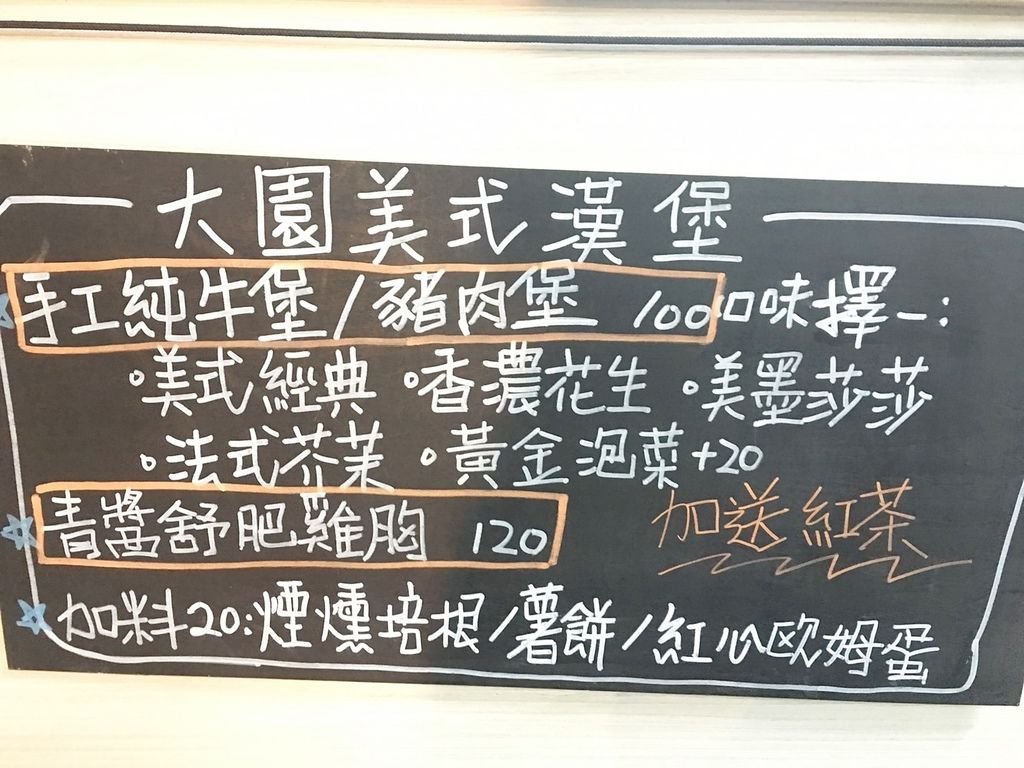 大園美式漢堡
手工純牛堡/豬肉堡 100口味擇一:
•美式經典 •香濃花生 •美墨莎莎
•法式芥茉 •黃金泡菜+20
青醬舒肥雞胸 120
加送紅茶
加料20:煙燻培根/薯餅/紅心歐姆蛋